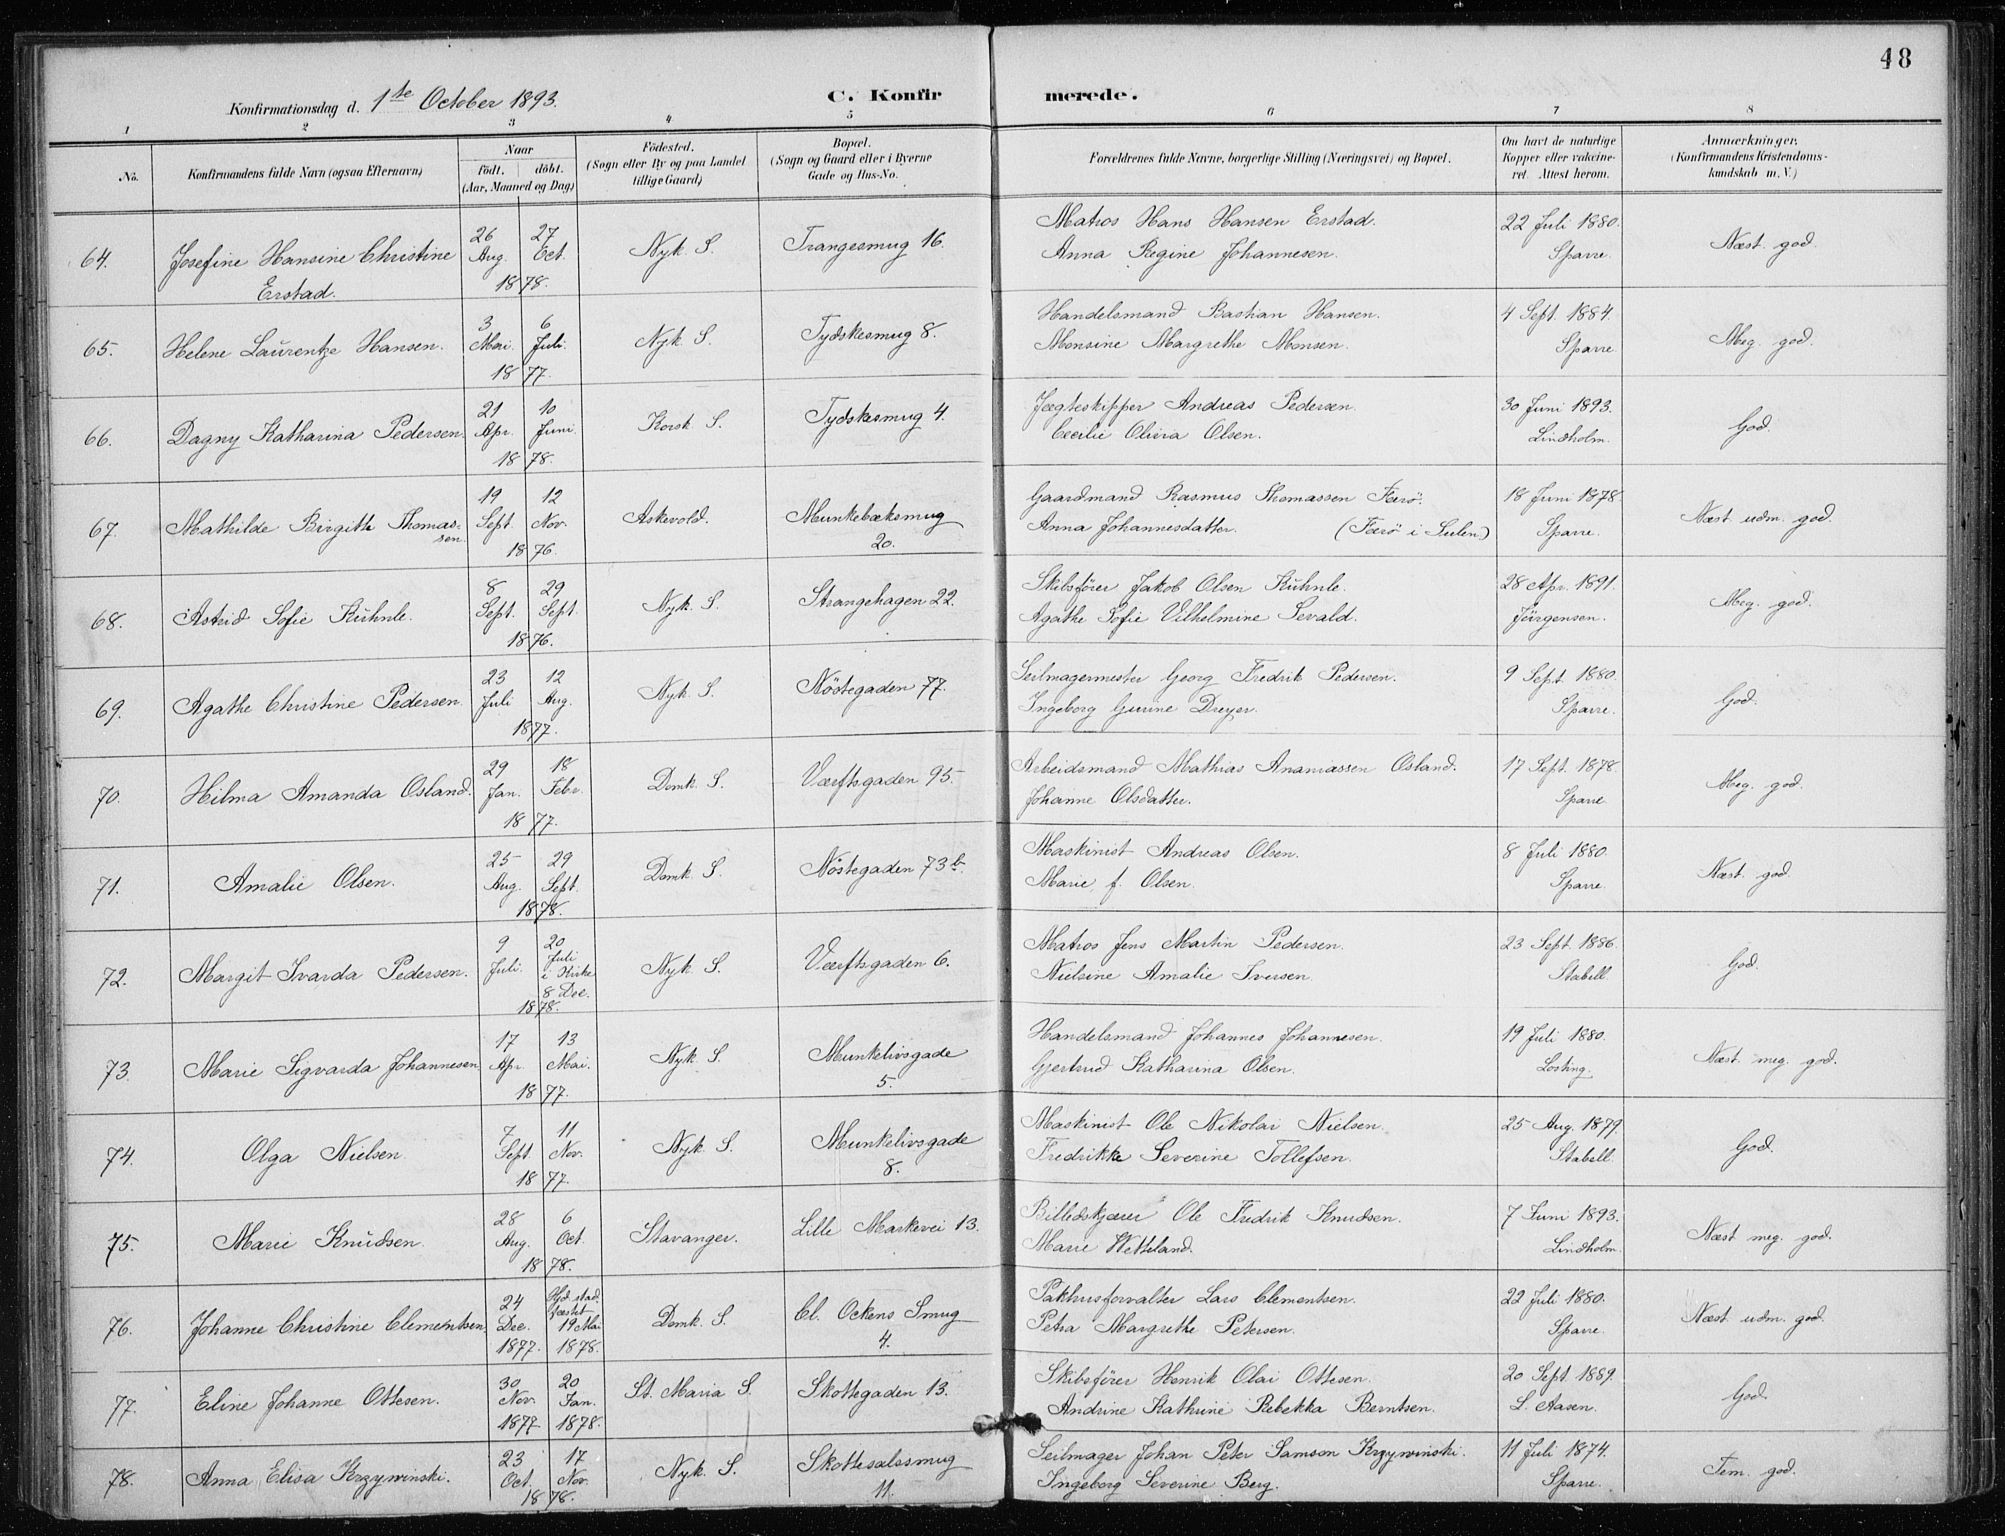 48
Konfirmationsdag d. 1ste October 1893.
C. Konfirmerede.
1 2 3 4 5 6 7 8
No.
Konfirmandens fulde Navn (ogsaa Efternavn)
Naar
födt. döbt.
(Aar, Maaned og Dag)
Födested.
(Sogn eller By og paa Landet
tillige Gaard)
Bopæl.
(Sogn og Gaard eller i Byerne
Gade og Hus-No.
Forældrenes fulde Navne, borgerlige Stilling (Næringsvei) og Bopæl.
Om havt de naturlige
Kopper eller vaccine-
ret. Attest herom.
Anmærkninger.
(Konfirmandens Kristendoms-
kundskab m. V.)
64. Josefine Hansine Christine
Erstad.
26 Aug. 27 Oct. 1878.
Nyk. S.
Trangesmug 16.
Matros Hans Hansen Erstad.
Anna Regine Johannesen.
22 Juli 1880.
Sparre.
Næst. god.
65. Helene Laurentze Hansen.
3 Mai. 6 Juli. 1877.
Nyk. S.
Tydskesmug 8.
Handelsmand Bastian Hansen.
Monsine Margrethe Monsen.
4 Sept. 1884.
Sparre
Meg. god.
66. Dagny Katharina Pedersen.
21 Apr. 10 Juni. 1878.
Korsk S.
Tydskesmug 4.
Jægteskipper Andreas Pedersen.
Cecilie Olivia Olsen.
30 Juni 1893.
Lindholm.
God.
67. Mathilde Birgitte Thomas-
sen.
19 Sept. 12 Nov. 1876.
Askevold.
Munkebæksmug
20.
Gaardmand Rasmus Thomassen Færö.
Anna Johannesdatter. (Færö i Sulen)
18 Juni 1878.
Sparre.
Næst udm. god.
68. Astrid Sofie Kühnle.
8 Sept. 29 Sept. 1876.
Nyk. S.
Strangehagen 22.
Skibsförer Jakob Olsen Kühnle.
Agathe Sofie Vilhelmine Sevald.
28 Apr. 1891.
Jürgensen.
Meg. god.
69. Agathe Christine Pedersen.
23 Juli 12 Aug. 1877.
Nyk. S.
Nöstegaden 77.
Seilmagermester Georg Fredrik Pedersen.
Ingeborg Gurine Dreyer.
9 Sept. 1880.
Sparre.
God.
70. Hilma Amanda Osland.
29 Jan. 18 Febr. 1877.
Domk. S.
Værftsgaden 95.
Arbeidsmand Mathias Ananiassen Osland.
Johanne Olsdatter.
17 Sept. 1878.
Sparre
Meg. god.
71. Amalie Olsen.
25 Aug. 29 Sept. 1878.
Domk. S.
Nöstegaden 73 b.
Maskinist Andreas Olsen.
Marie f. Olsen.
8 Juli 1880.
Sparre.
Næst. god.
72. Margit Ivarda Pedersen.
9 Juli. 20 Juli i Kirke 8 Dec. 1878.
Nyk. S.
Værftsgaden 6.
Matros Jens Martin Pedersen.
Nielsine Amalie Iversen.
23 Sept. 1886.
Stabell
God.
73. Marie Sigvarda Johannesen
17 Apr. 13 Mai. 1877.
Nyk. S.
Munkelivsgade
5.
Handelsmand Johannes Johannesen.
Gjertrud Katharina Olsen.
19 Juli 1880.
Losting.
Næst meg. god.
74. Olga Nielsen
7 Sept. 11 Nov. 1877.
Nyk. S.
Munkelivsgade
8.
Maskinist Ole Nikolai Nielsen.
Fredrikke Severine Tollefsen.
25 Aug. 1879.
Stabell.
God.
75. Marie Knudsen.
28 Aug. 6 Oct. 1878.
Stavanger.
Lille Markevei 13.
Billedskjærer Ole Fredrik Knudsen.
Marie Wetteland.
7 Juni 1893.
Lindholm.
Næst meg. god.
76. Johanne Christine Clementsen.
24 Dec. 1877. Hjd. stad-
fæstet 19 Mai 1878.
Domk. S.
Cl. Ockens Smug
4.
Pakhusforvalter Lars Clementsen.
Petra Margrethe Petersen.
22 Juli 1880.
Sparre.
Næst udm. god.
77. Eline Johanne Ottesen.
30 Nov. 1877 20 Jan. 1878.
St. Maria S.
Skottegaden 13.
Skibsförer Henrik Olai Ottesen.
Andrine Kathrine Rebekka Berntsen.
20 Sept. 1889.
L. Aasen.
God.
78. Anna Elisa Krzywinski.
23 Oct. 17 Nov. 1878.
Nyk. S.
Skottesalssmug
11.
Seilmager Johan Peter Samson Krzywinski.
Ingeborg Severine Berg.
11 Juli 1874.
Sparre.
Tem. god.